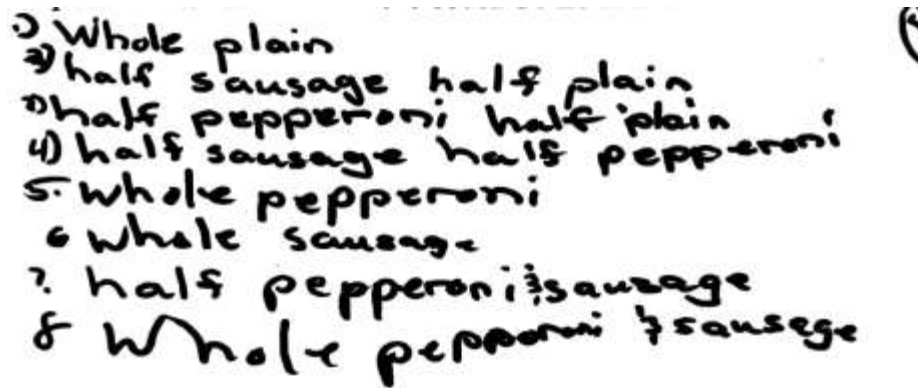 1) Whole plain
2) half sausage half plain
3) half pepperoni half plain
4) half sausage half pepperoni
5. whole pepperoni
6 whole sausage
7. half pepperoni & sausage
8 whole pepperoni & sausage